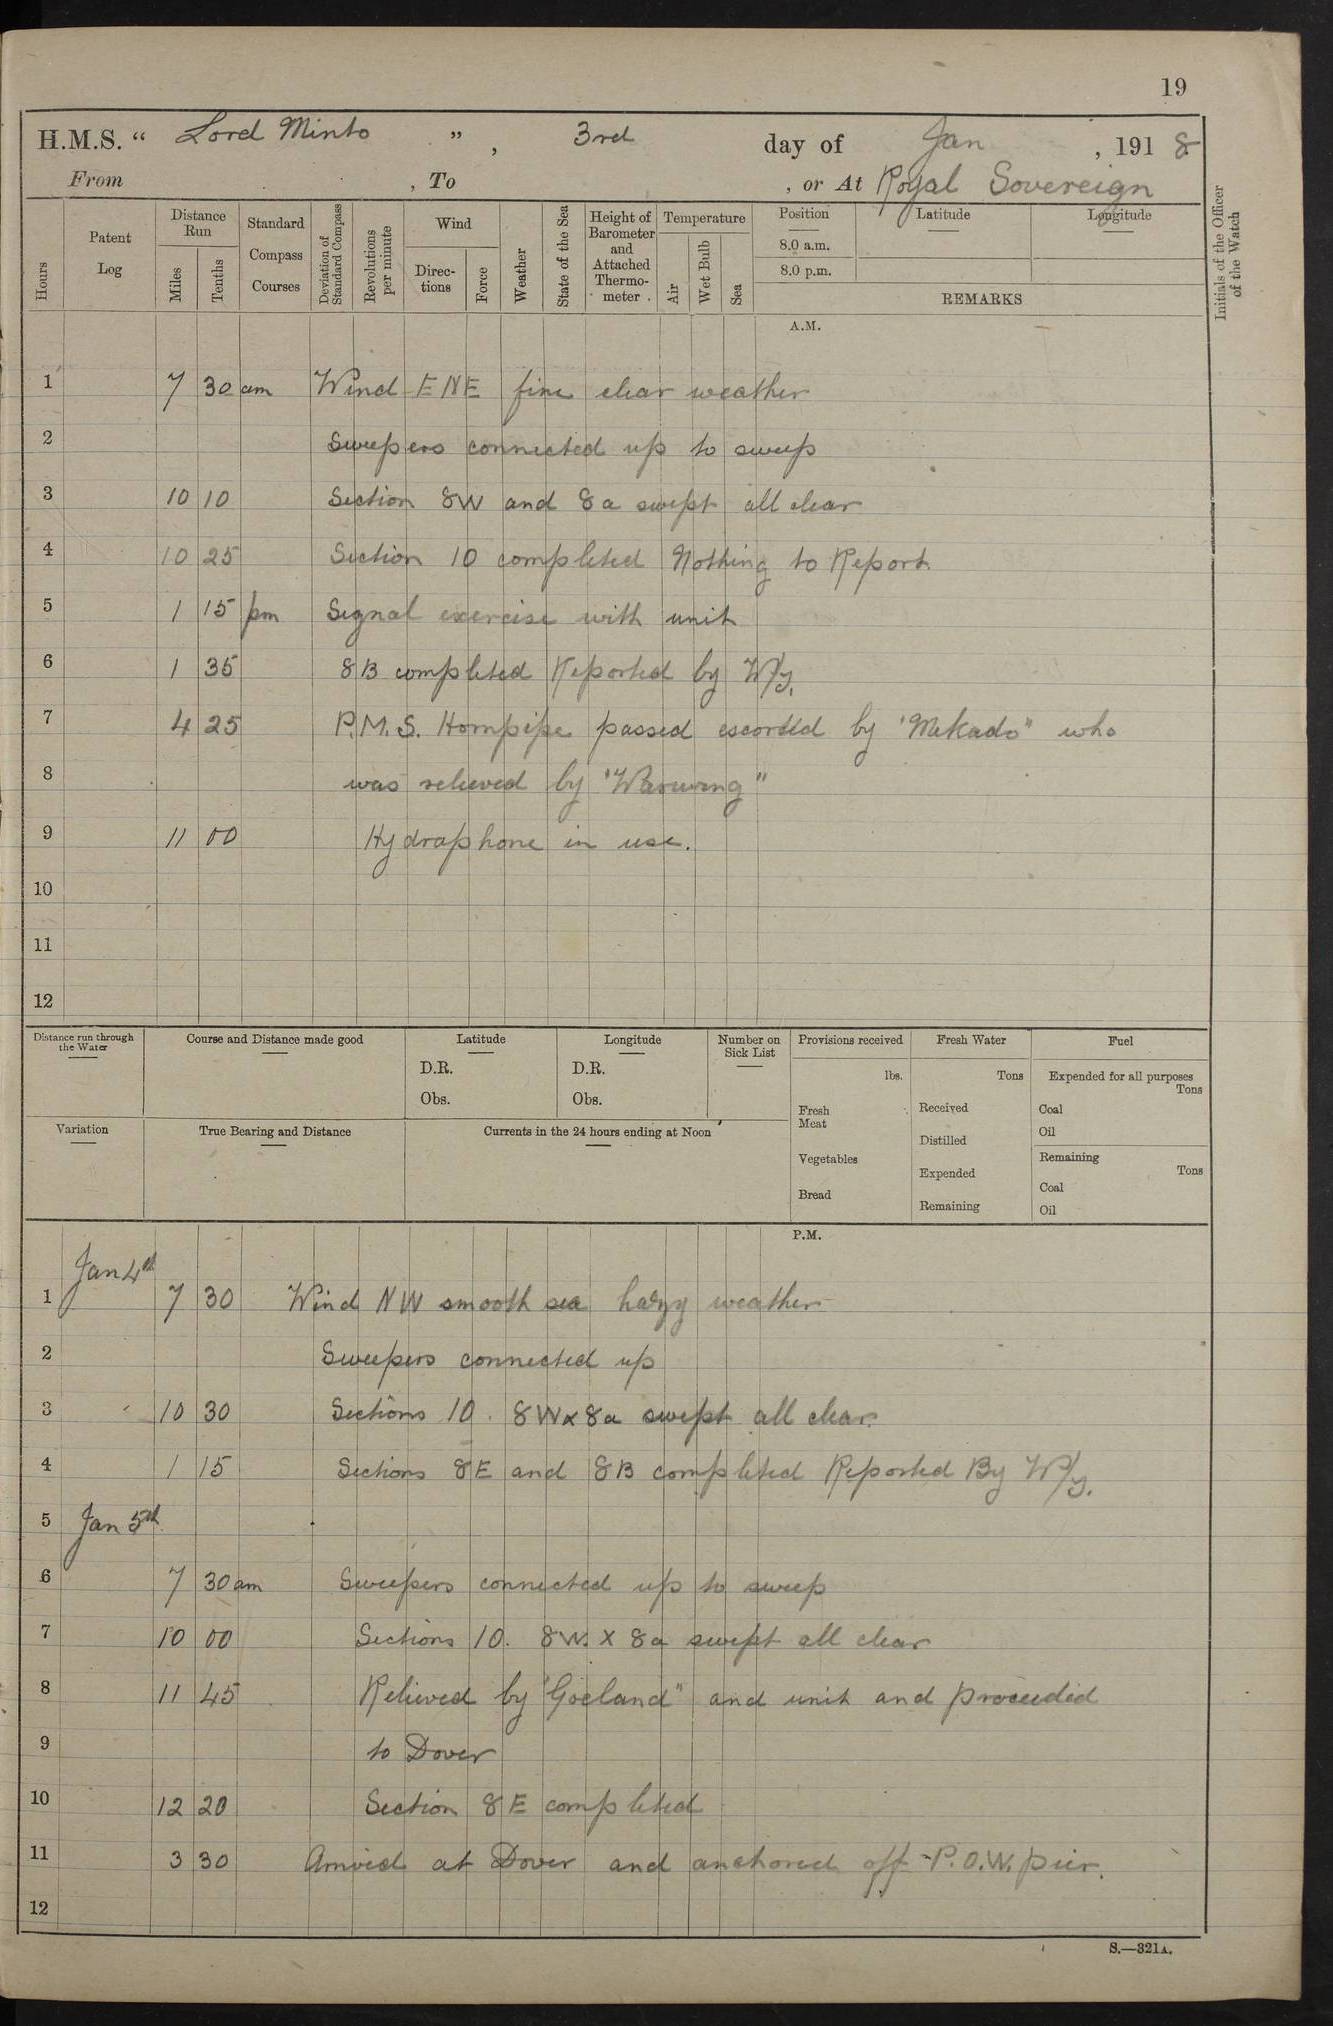 19
H.M.S. “ Lord Minto ” , 3rd day of Jan , 1918
From , To , or At Royal Sovereign
Hours
Patent Log
Distance Run
Miles
Tenths
Standard Compass Courses
Deviation of Standard Compass
Revolutions per minute
Wind
Directions
Force
Weather
State of the Sea
Height of Barometer and Attached Thermometer
Temperature
Air
Wet Bulb
Sea
Position Latitude Longitude
8.0 a.m.
8.0 p.m.
REMARKS
Initials of the Officer of the Watch
A.M.
1 7 30 am Wind ENE fine clear weather
2 Sweepers connected up to sweep
3 10 10 Section 8W and 8a swept all clear
4 10 25 Section 10 completed Nothing to Report
5 1 15 pm Signal exercise with unit
6 1 35 8B completed Reported by W/y.
7 4 25 P.M.S. Hornpipe passed escorted by "Mikado" who
8 was relieved by
9 11 00 Hydraphone in use.
10
11
12
Distance run through the Water
Course and Distance made good
Latitude
D.R.
Obs.
Longitude
D.R.
Obs.
Number on Sick List
Provisions received
lbs.
Fresh Meat
Vegetables
Bread
Fresh Water
Tons
Received
Distilled
Expended
Remaining
Fuel
Expended for all purposes
Tons
Coal
Oil
Remaining
Tons
Coal
Oil
Variation
True Bearing and Distance
Currents in the 24 hours ending at Noon
P.M.
Jan 4th
1 7 30 Wind NW smooth sea hazy weather
2 Sweepers connected up
3 10 30 Sections 10. 8W x 8a swept all clear.
4 1 15 Sections 8E and 8B completed Reported By W/y.
5 Jan 5th
6 7 30 am Sweepers connected up to sweep
7 10 00 Sections 10. 8W. X 8a swept all clear
8 11 45 Relieved by "Goeland" and unit and proceeded
9 to Dover
10 12 20 Section 8E completed
11 3 30 Arrived at Dover and anchored off P.O.W. pier.
12
S.—321A.